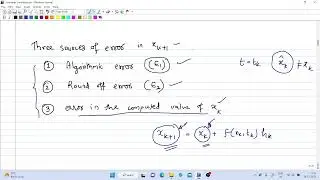 Three sources of error in x_{k+1}
① Algorithmic error (E_1)
t = t_k x̂_k ≠ x_k
② Round off error (E_2)
③ error in the computed value of x_k
x_{k+1} = x_k + f(x_k, t_k) h_k